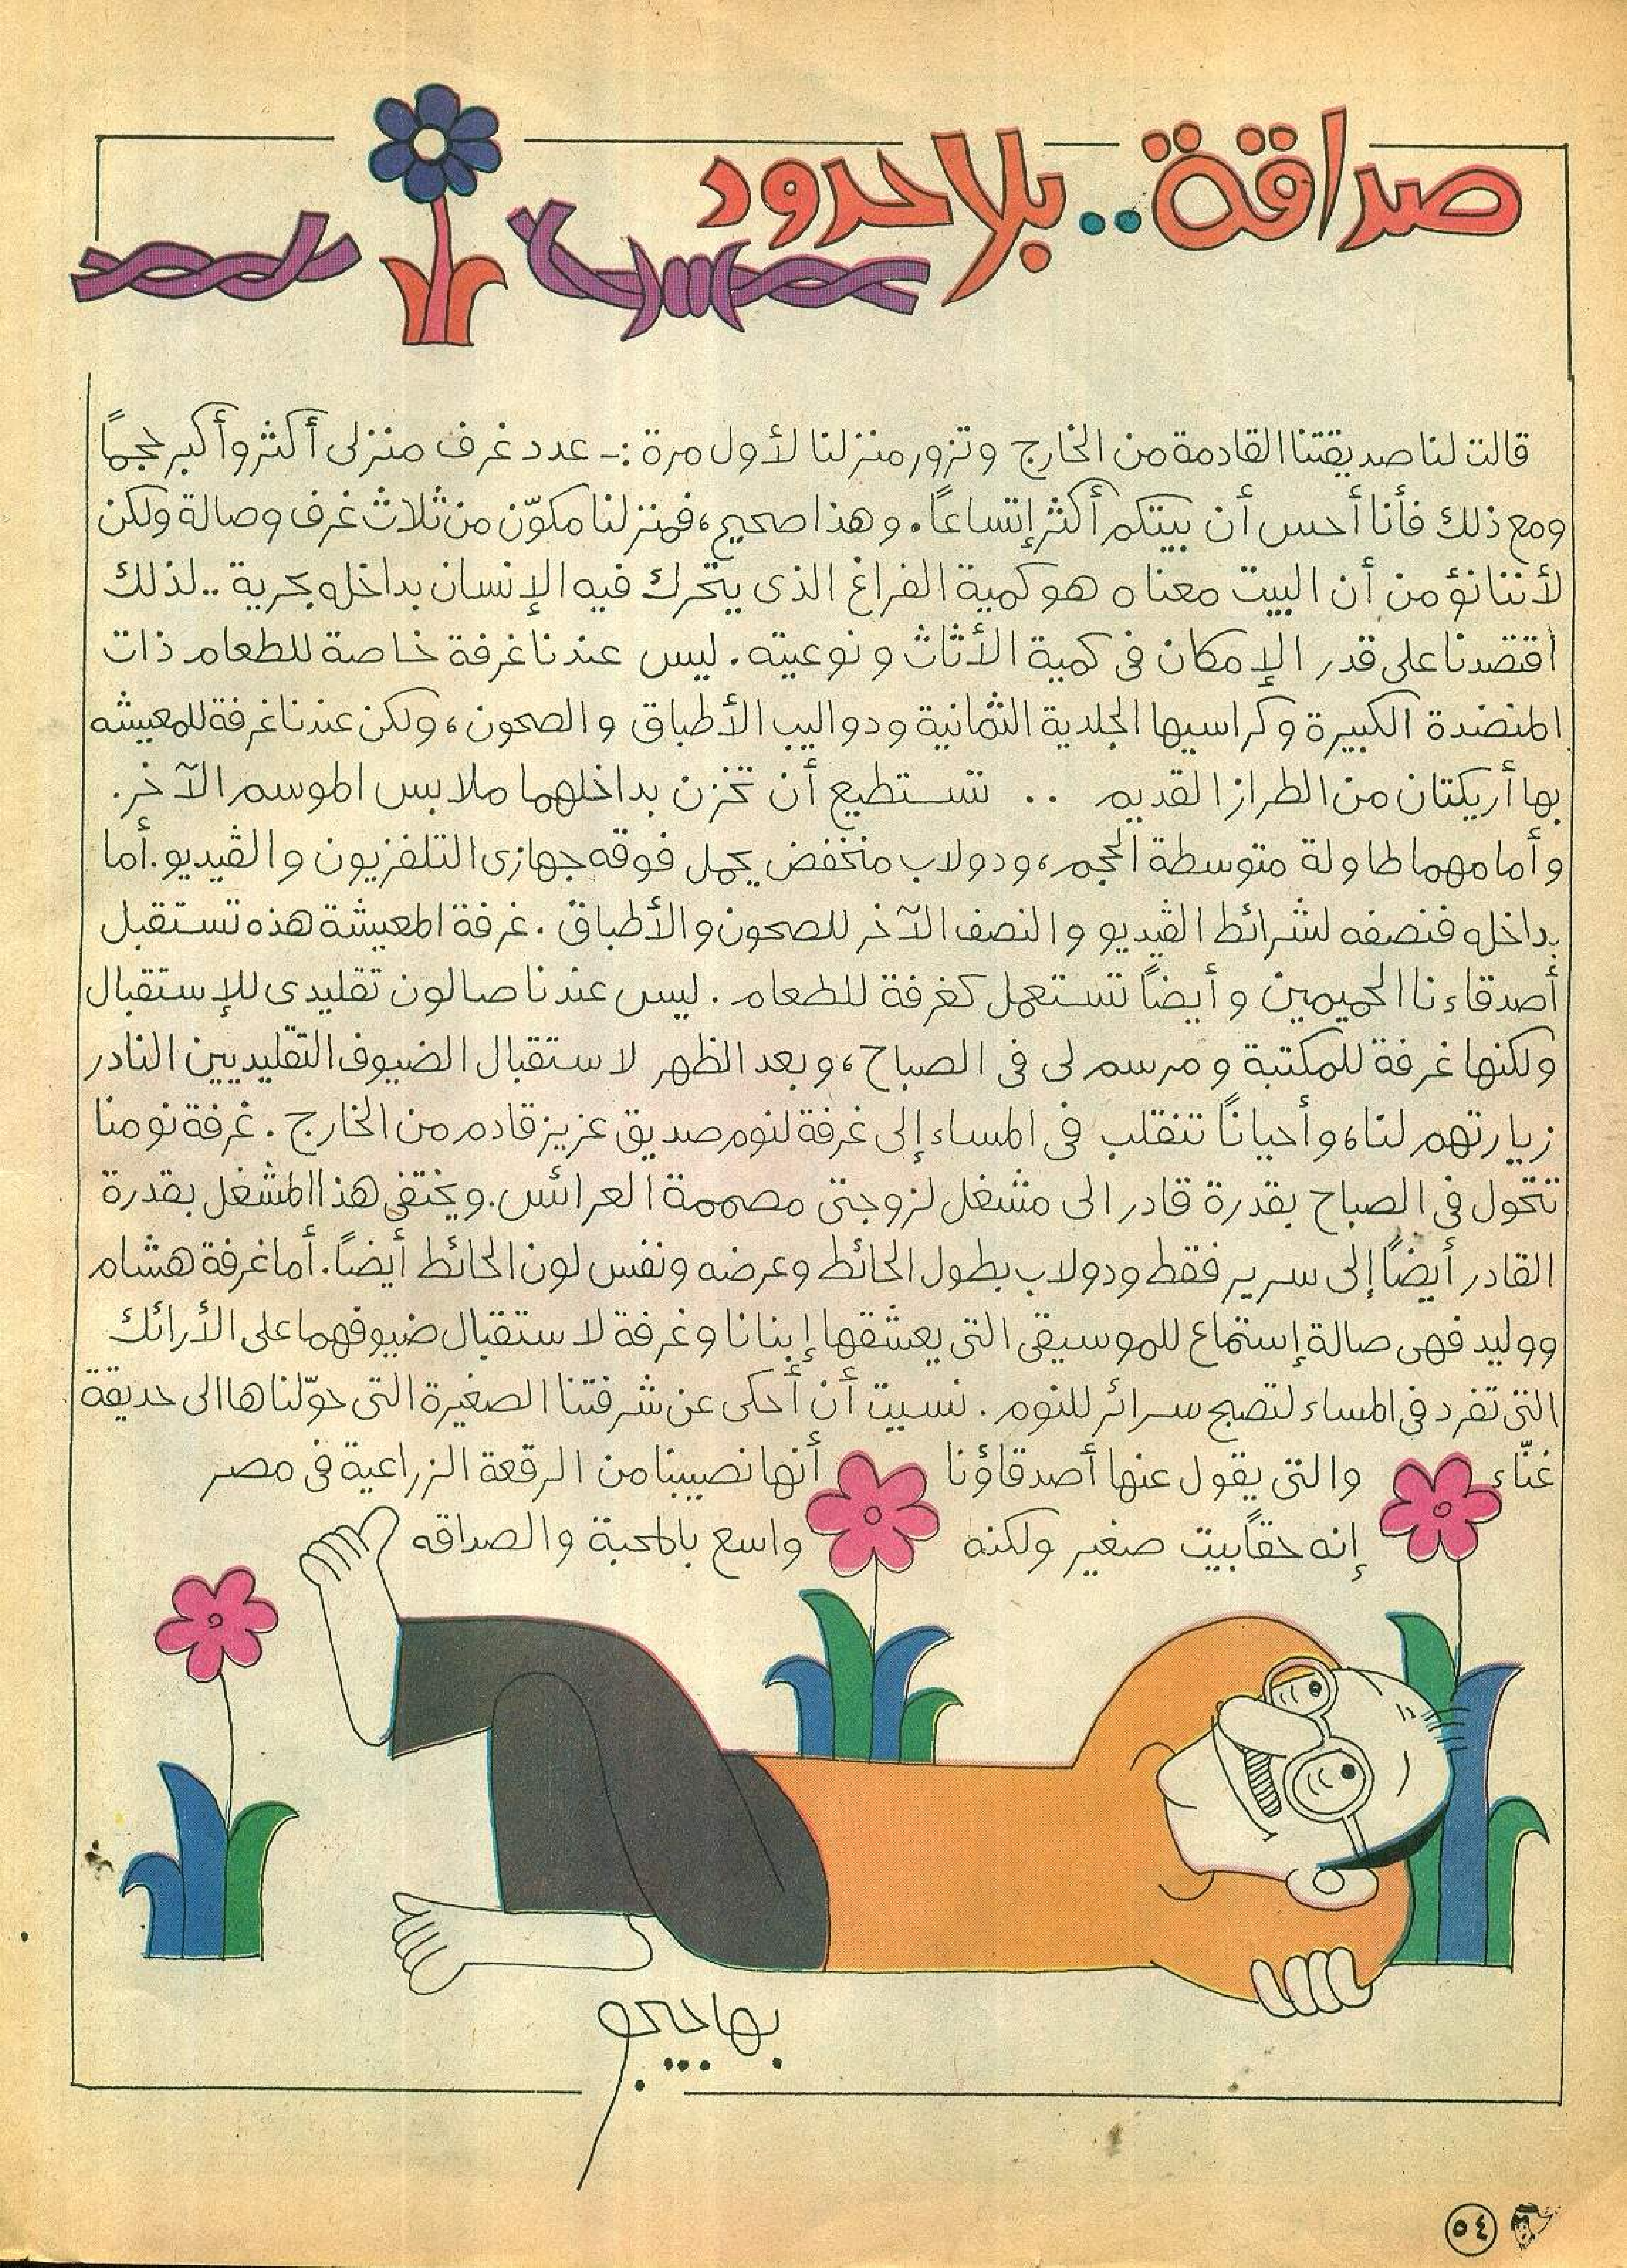 صداقة.. بلا حدود
قالت لنا صديقتنا القادمة من الخارج وتزور منزلنا لأول مرة :- عدد غرف منزلى أكثر وأكبر حجماً
ومع ذلك فأنا أحس أن بيتكم أكثر إتساعاً. وهذا صحيح، فمنزلنا مكوّن من ثلاث غرف وصالة ولكن
لأننا نؤمن أن البيت معناه هو كمية الفراغ الذى يتحرك فيه الإنسان بداخله بحرية .. لذلك
اقتصدنا على قدر الإمكان فى كمية الأثاث ونوعيته. ليس عندنا غرفة خاصة للطعام ذات
المنضدة الكبيرة وكراسيها الجلدية الثمانية ودواليب الأطباق والصحون، ولكن عندنا غرفة للمعيشه
بها أريكتان من الطراز القديم .. تستطيع أن تخزن بداخلهما ملابس الموسم الآخر.
وأمامهما طاولة متوسطة الحجم، ودولاب منخفض يحمل فوقه جهازى التلفزيون والڤيديو. أما
بداخله فنصفه لشرائط الڤيديو والنصف الآخر للصحون والأطباق. غرفة المعيشة هذه تستقبل
أصدقاءنا الحميمين وأيضاً تستعمل كغرفة للطعام. ليس عندنا صالون تقليدى للإستقبال
ولكنها غرفة للمكتبة ومرسم لى فى الصباح، وبعد الظهر لاستقبال الضيوف التقليديين النادر
زيارتهم لنا، وأحياناً تنقلب فى المساء إلى غرفة لنوم صديق عزيز قادم من الخارج. غرفة نومنا
تتحول فى الصباح بقدرة قادر الى مشغل لزوجتى مصممة العرائس. ويختفى هذا المشغل بقدرة
القادر أيضاً إلى سرير فقط ودولاب بطول الحائط وعرضه ونفس لون الحائط أيضاً. أما غرفة هشام
ووليد فهى صالة إستماع للموسيقى التى يعشقها إبنانا وغرفة لاستقبال ضيوفهما على الأرائك
التى تفرد فى المساء لتصبح سرائر للنوم. نسيت أن أحكى عن شرفتنا الصغيرة التى حوّلناها الى حديقة
غنّاء والتى يقول عنها أصدقاؤنا أنها نصيبنا من الرقعة الزراعية فى مصر
إنه حقاً بيت صغير ولكنه واسع بالمحبة والصداقه
بهاجيجو
٥٤